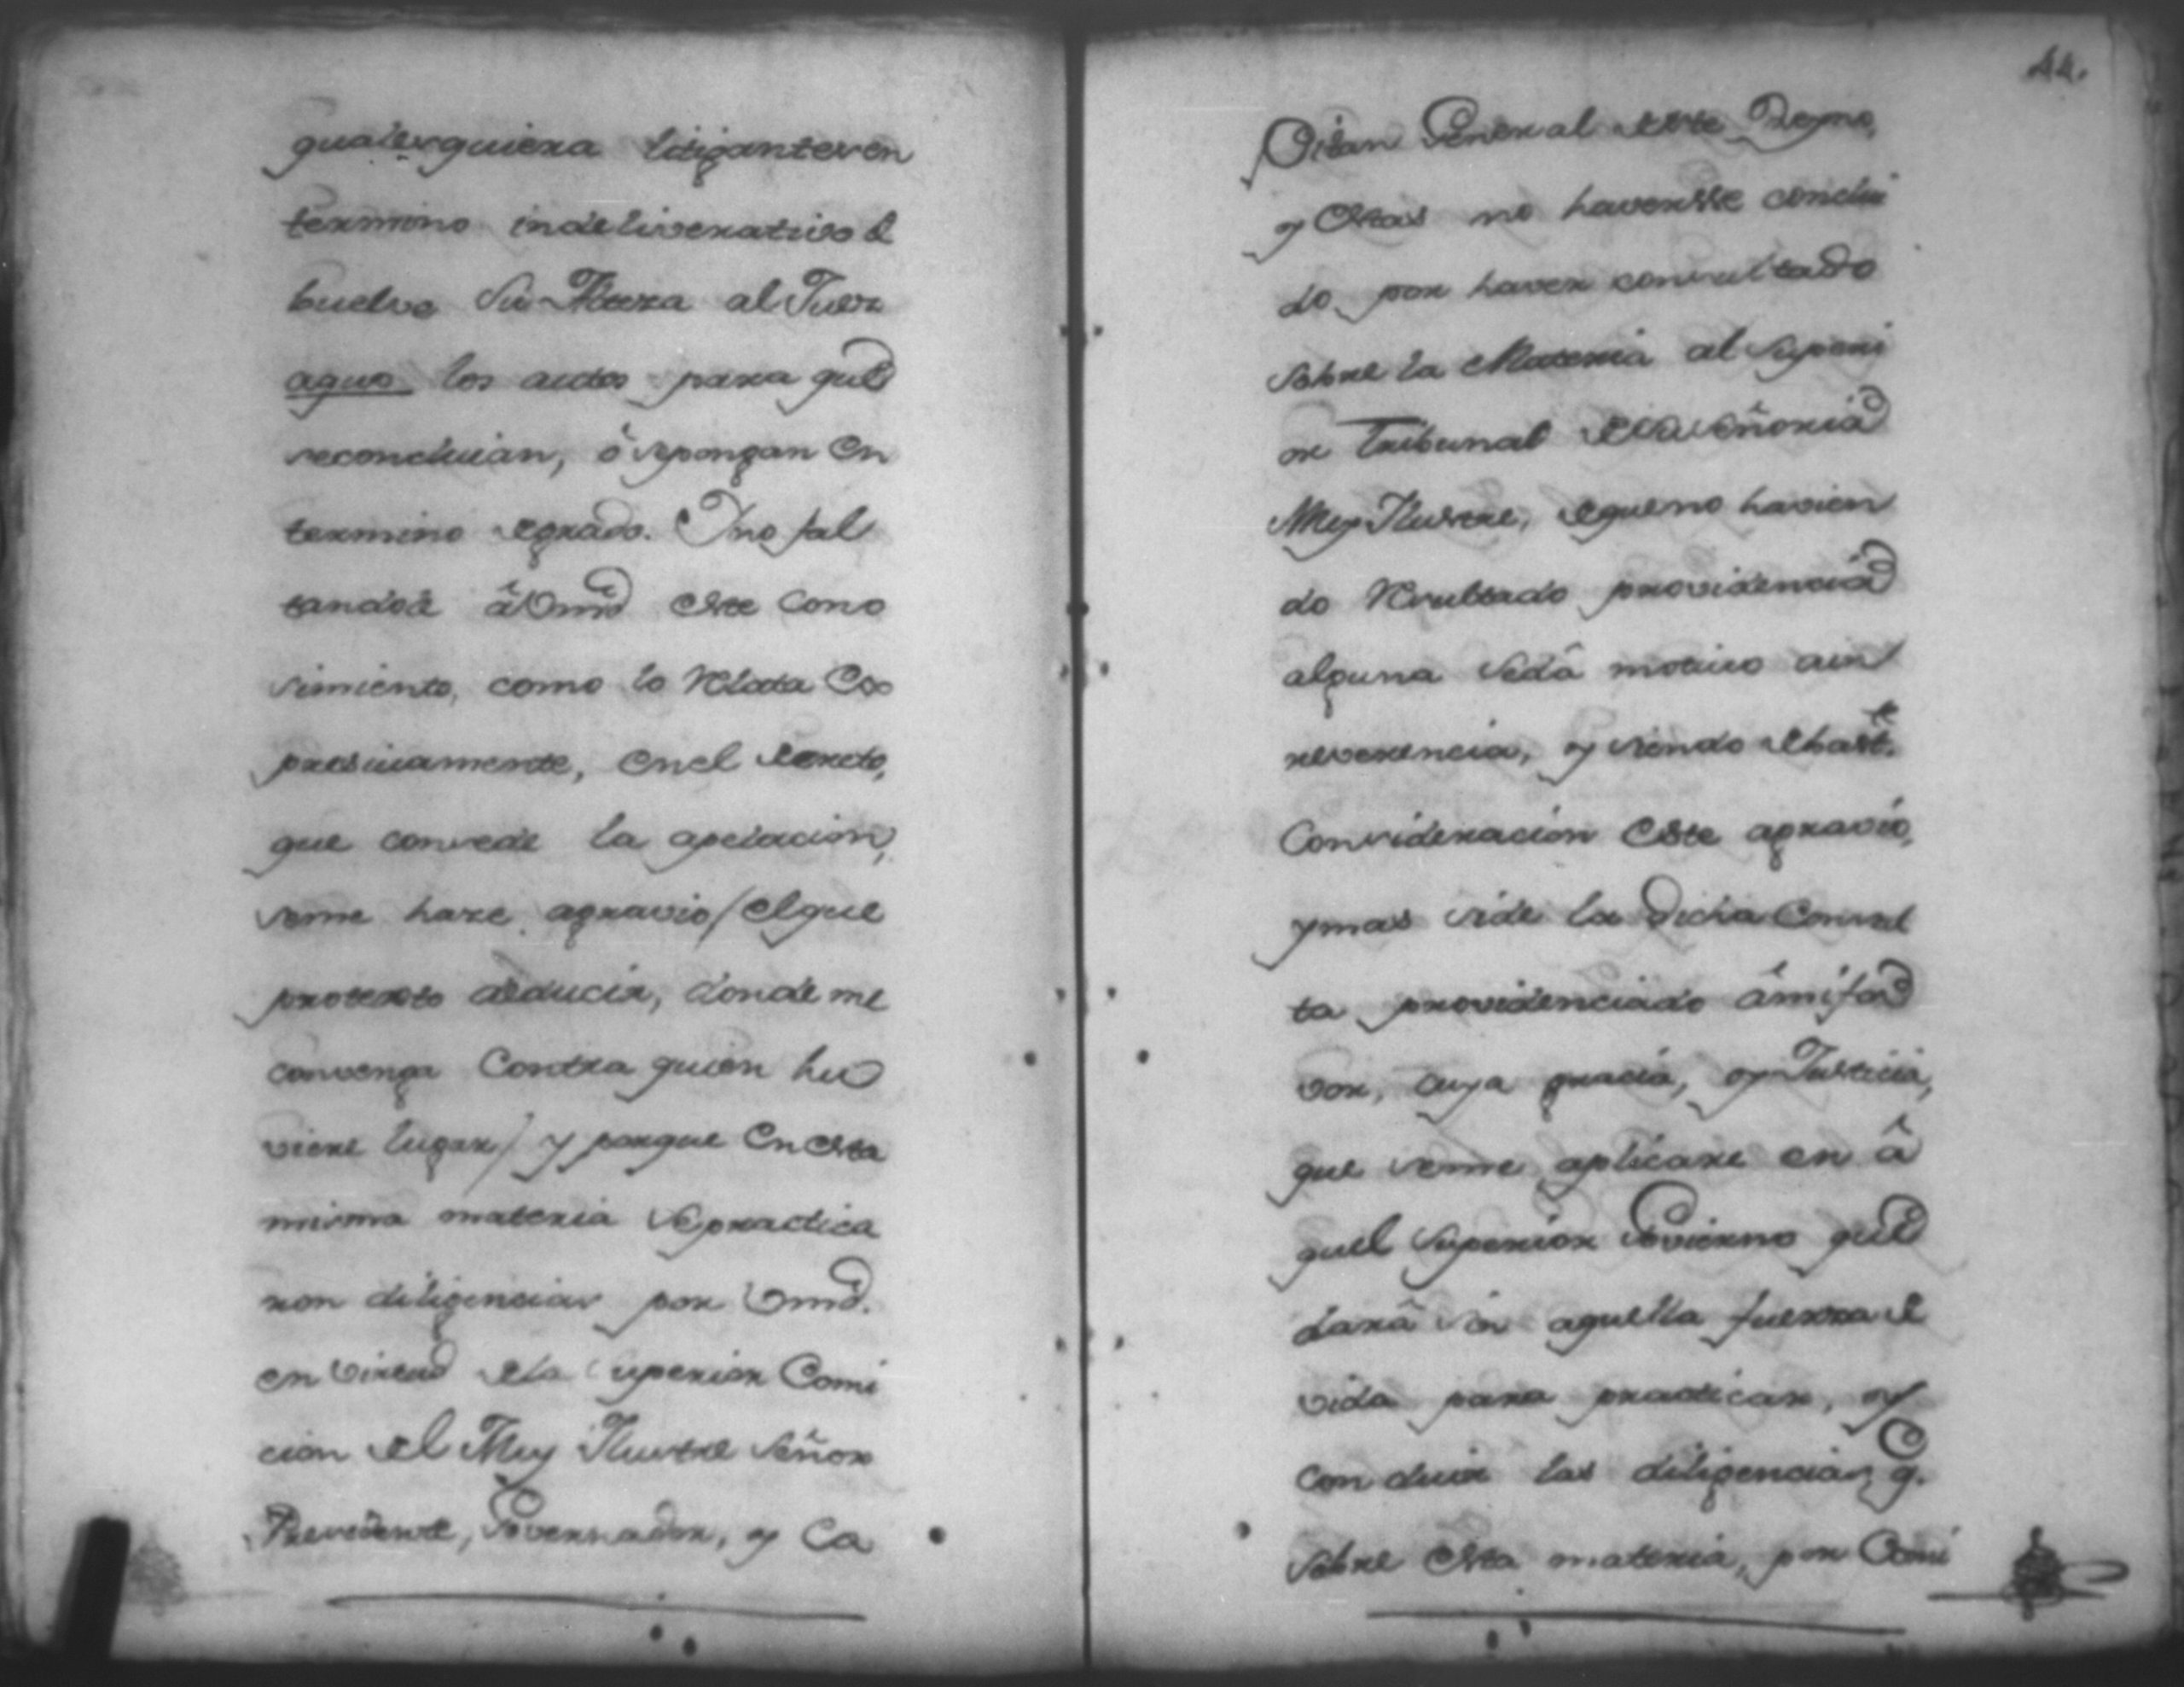 qualesquiera litigantes en
termino indeliverativo de
buelve Su Alteza al Juez
aquo los autos para que
seconcluian, ô sepongan En
termino degrado. Y no fal
tandole â Vmd Este Cono
simiento, como lo Relata Ex
presivamente, Enel Decreto,
que consede la apelacion,
seme haze agravio / El que
protexto deducir, donde me
convenga Contra quien hu
viere lugar / y porque En Esta
misma materia sepractica
ron diligencias por Vmd.
en Virtud dela Superior Comi
cion del Muy Ilustre Señor
Presidente, Governador, y Ca
44.
Pitan General deste Reyno,
y Estas no haversse conclui
do, por haver consultado
sobre la Materia al Superi
or Tribunal desuseñoria
Muy Ilustre, dequeno havien
do Resultado providencia
alguna sedâ motivo asu
reverencia, y siendo dehaste.
Consideracion Este agravio,
ymas side la Dicha Consul
ta providenciado âmifa
vor, cuya gracia, y Justicia,
que seme aplicare en â
quel Superior Govierno que
darâ sin aquella fuerza de
vida para practicar, y
Concluir las diligencias q.
Sobre Esta materia, por Comi